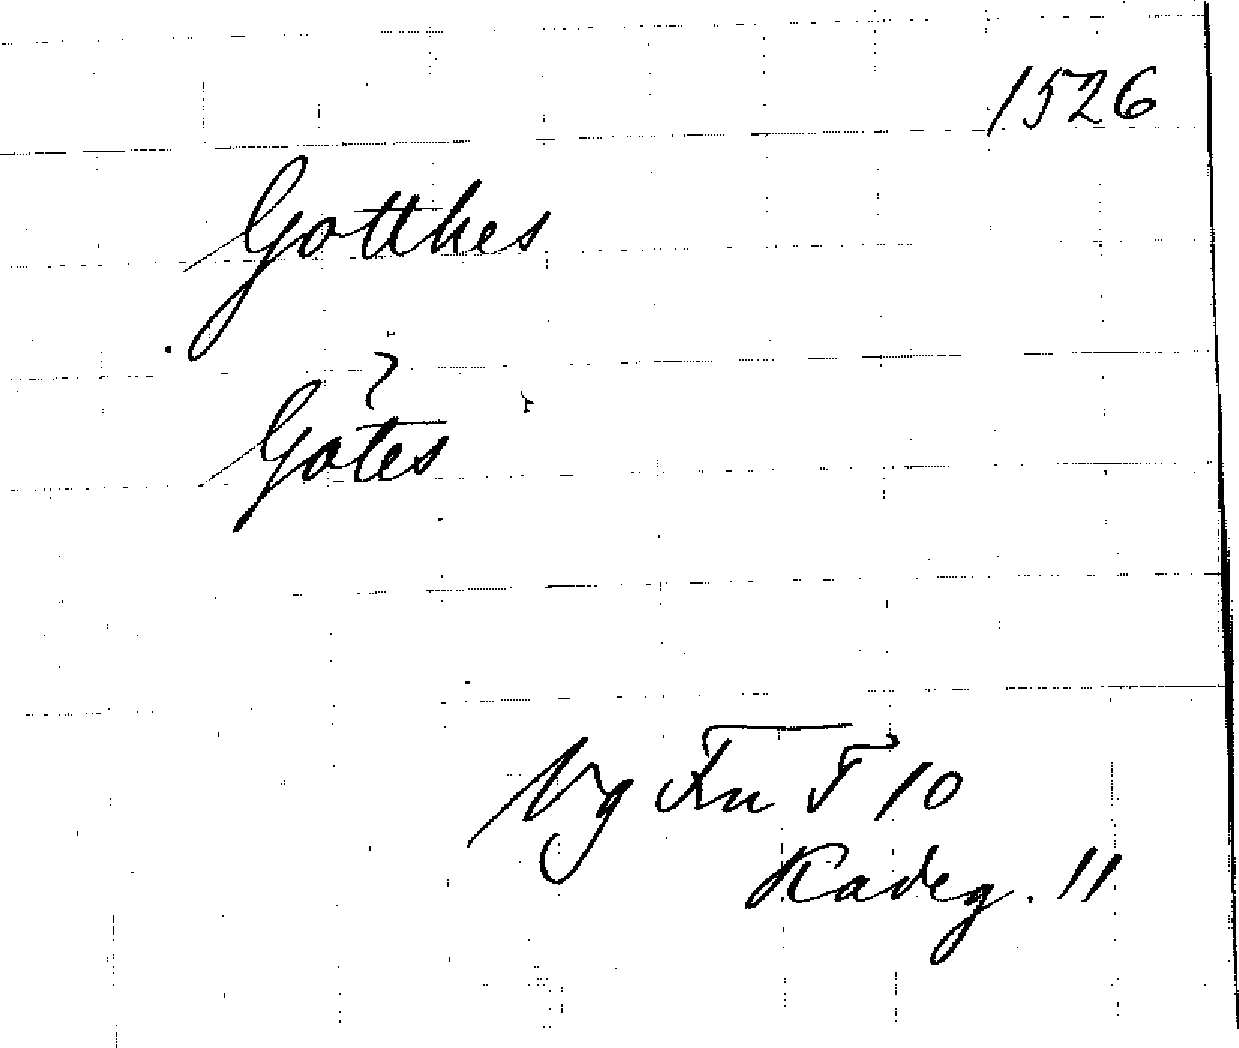 1526
Gotthes
?
Gotes
Vg Fn F 10
Kadeg. 11